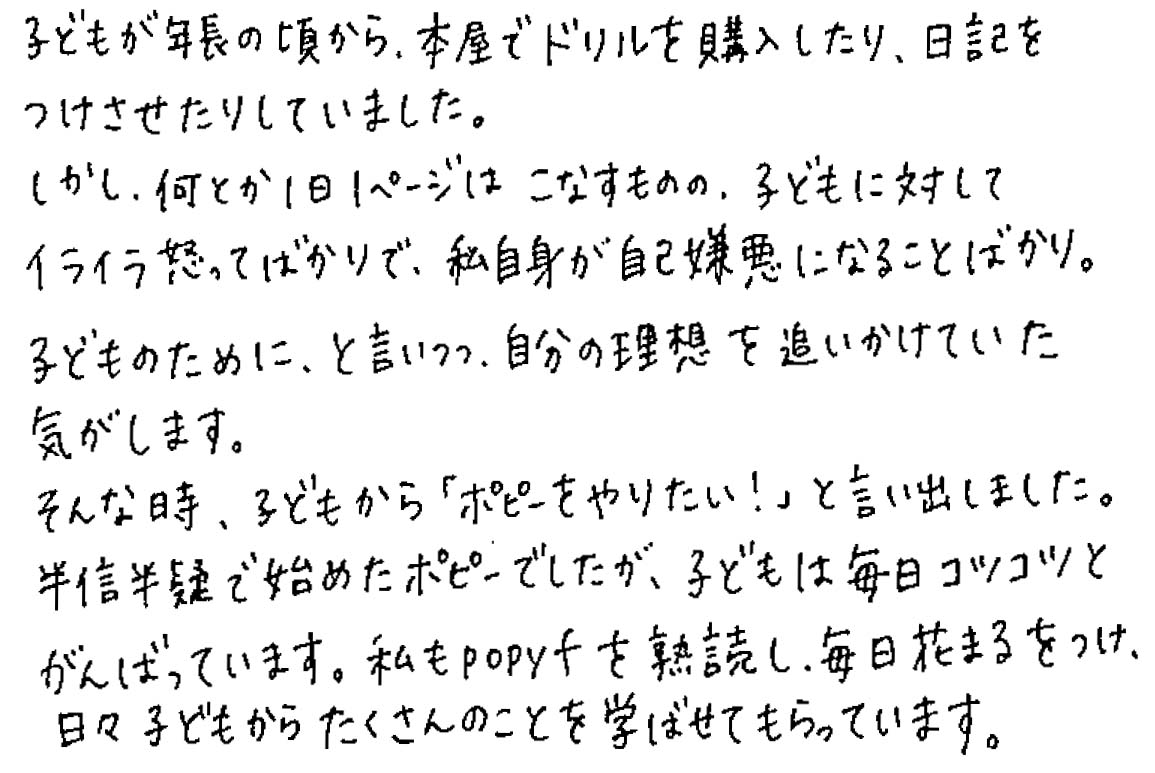 子どもが年長の頃から、本屋でドリルを購入したり、日記を
つけさせたりしていました。
しかし、何とか1日1ページは こなすものの、子どもに対して
イライラ怒ってばかりで、私自身が自己嫌悪になることばかり。
子どものために、と言いつつ、自分の理想を追いかけていた
気がします。
そんな時、子どもから「ポピーをやりたい!」と言い出しました。
半信半疑で始めたポピーでしたが、子どもは毎日コツコツと
がんばっています。私もpopyfを熟読し、毎日花まるをつけ、
日々子どもからたくさんのことを学ばせてもらっています。